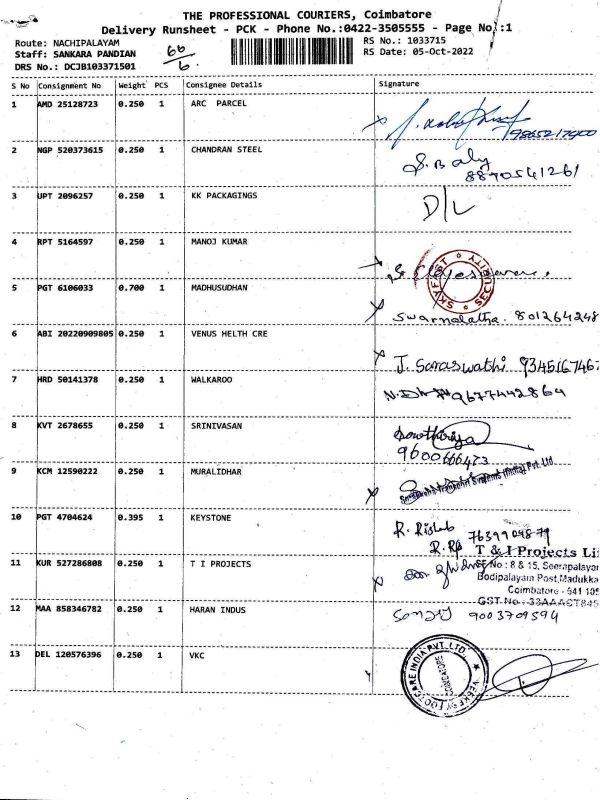 THE PROFESSIONAL COURIERS, Coimbatore
Delivery Runsheet - PCK - Phone No.:0422-3505555 - Page No.:1
Route: NACHIPALAYAM
RS No.: 1033715
Staff: SANKARA PANDIAN
RS Date: 05-Oct-2022
DRS No.: DCJB103371501
66/6.
S No Consignment No Weight PCS Consignee Details Signature
1 AMD 25128723 0.250 1 ARC PARCEL
2 NGP 520373615 0.250 1 CHANDRAN STEEL S. Baly
8870541261
3 UPT 2096257 0.250 1 KK PACKAGINGS D/L
4 RPT 5164597 0.250 1 MANOJ KUMAR
SKYFAST SECURITY
5 PGT 6106033 0.700 1 MADHUSUDHAN Swarnalatha. 801264248
6 ABI 20220909805 0.250 1 VENUS HELTH CRE J. Saraswathi 9345167467
7 HRD 50141378 0.250 1 WALKAROO 9677442864
8 KVT 2678655 0.250 1 SRINIVASAN Sowthiriya
9600666473
9 KCM 12590222 0.250 1 MURALIDHAR Systems (India) Pvt. Ltd
10 PGT 4704624 0.395 1 KEYSTONE R. Rishab 7639904879
11 KUR 527286808 0.250 1 T I PROJECTS T & I Projects Li
SF No : 8 & 15, Seerapalayar
Bodipalayam Post, Madukka
Coimbatore - 641 105
GST No : 33AAACT845
12 MAA 858346782 0.250 1 HARAN INDUS 9003709594
13 DEL 120576396 0.250 1 VKC VEEKESY FOOTCARE INDIA PVT. LTD.
COIMBATORE